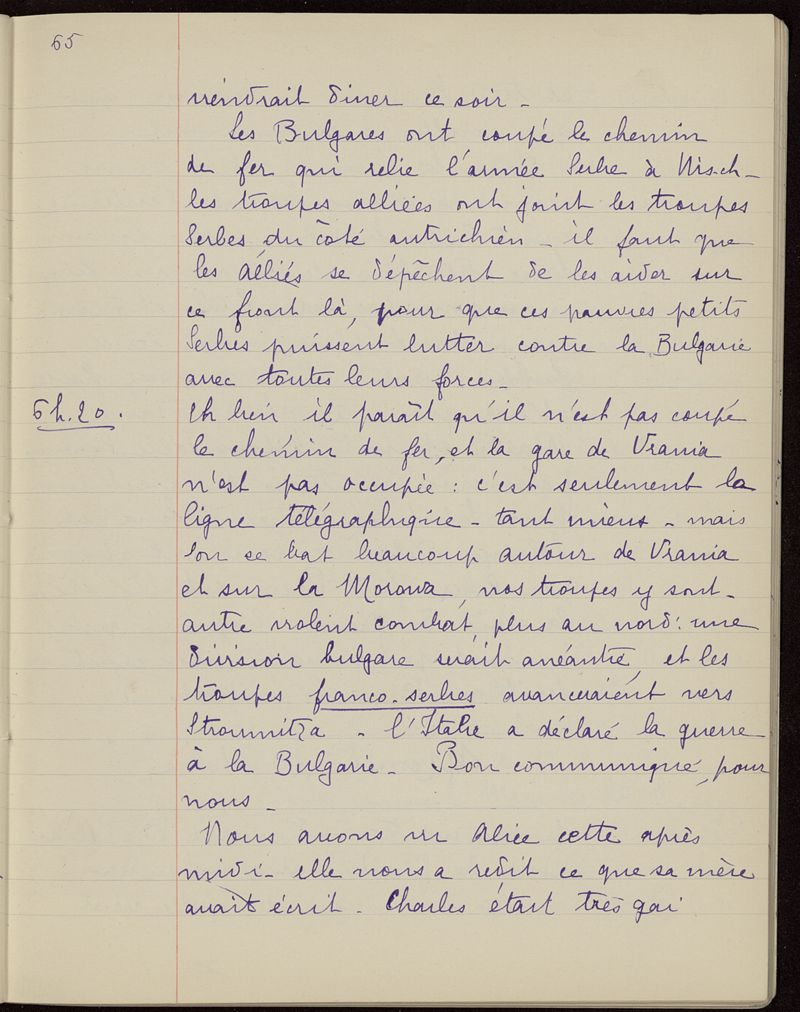 65
viendrait diner ce soir -
Les Bulgares ont coupé le chemin
de fer qui relie l'armée Serbe à Nisch -
les troupes alliées ont joint les troupes
Serbes du côté autrichien - il faut que
les Alliés se dépêchent de les aider sur
ce front là, pour que ces pauvres petits
Serbes puissent lutter contre la Bulgarie
avec toutes leurs forces -
6h.20. Eh bien il paraît qu'il n'est pas coupé
le chemin de fer, et la gare de Vrania
n'est pas occupée : c'est seulement la
ligne télégraphique - tant mieux - mais
l'on se bat beaucoup autour de Vrania
et sur la Morawa, nos troupes y sont -
autre violent combat, plus au nord : une
division bulgare serait anéantie, et les
troupes franco-serbes avanceraient vers
Stroumitza - l'Italie a déclaré la guerre
à la Bulgarie - Bon communiqué, pour
nous -
Nous avons vu Alice cette après
midi - elle nous a redit ce que sa mère
avait écrit - Charles était très gai